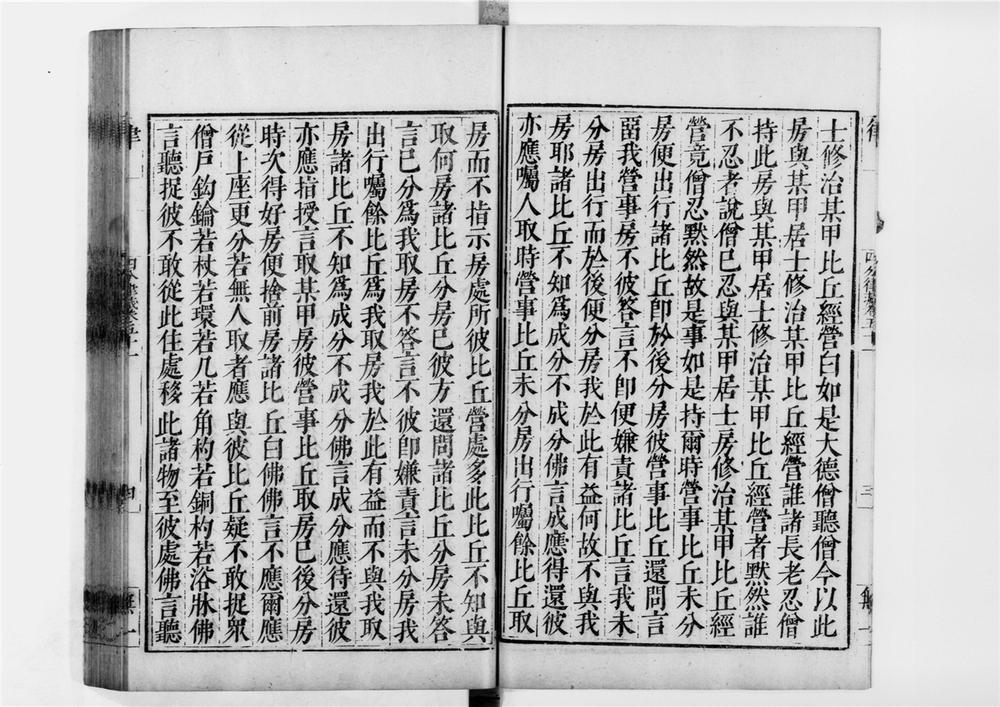 士修治某甲比丘經營白如是大德僧聽僧今以此
房與某甲居士修治某甲比丘經營誰諸長老忍僧
持此房與某甲居士修治某甲比丘經營者默然誰
不忍者說僧已忍與某甲居士房修治某甲比丘經
營竟僧忍默然故是事如是持爾時營事比丘未分
房便出行諸比丘卽於後分房彼營事比丘還問言
留我營事房不彼答言不卽便嫌責諸比丘言我未
分房出行而於後便分房我於此有益何故不與我
房耶諸比丘不知爲成分不成分佛言成應得還彼
亦應囑人取時營事比丘未分房出行囑餘比丘取
房而不指示房處所彼比丘營處多此比丘不知與
取何房諸比丘分房已彼方還問諸比丘分房未答
言已分爲我取房不答言不彼卽嫌責言未分房我
出行囑餘比丘爲我取房我於此有益而不與我取
房諸比丘不知爲成分不成分佛言成分應待還彼
亦應指授言取某甲房彼營事比丘取房已後分房
時次得好房便捨前房諸比丘白佛佛言不應爾應
從上座更分若無人取者應與彼比丘疑不敢捉眾
僧戶鈎鑰若杖若環若几若角杓若銅杓若浴牀佛
言聽捉彼不敢從此住處移此諸物至彼處佛言聽